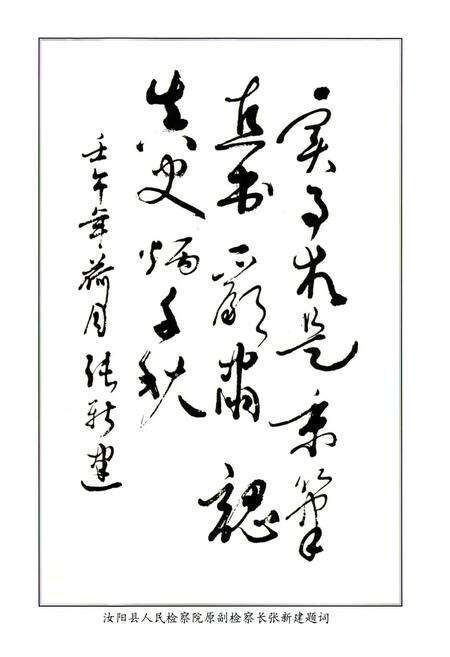 实事求是秉筆
直书嚴肅認
真史炳千秋
壬午年荷月张新建
汝阳县人民检察院原副检察长张新建题词